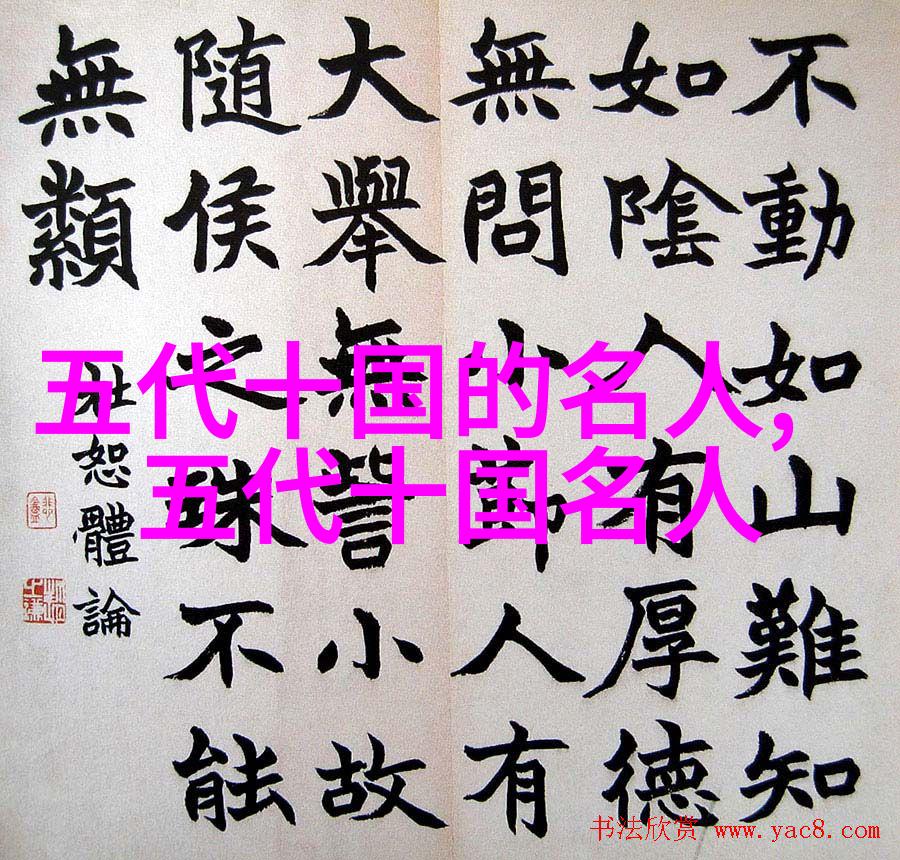 不動如山難知
如陰人有厚德
無問小節人有
大舉無訾小故
隨侯之珠不能
無纇
杜恕體論
五代十国的名人,
五代十国名人
书法欣赏 www.yac8.com